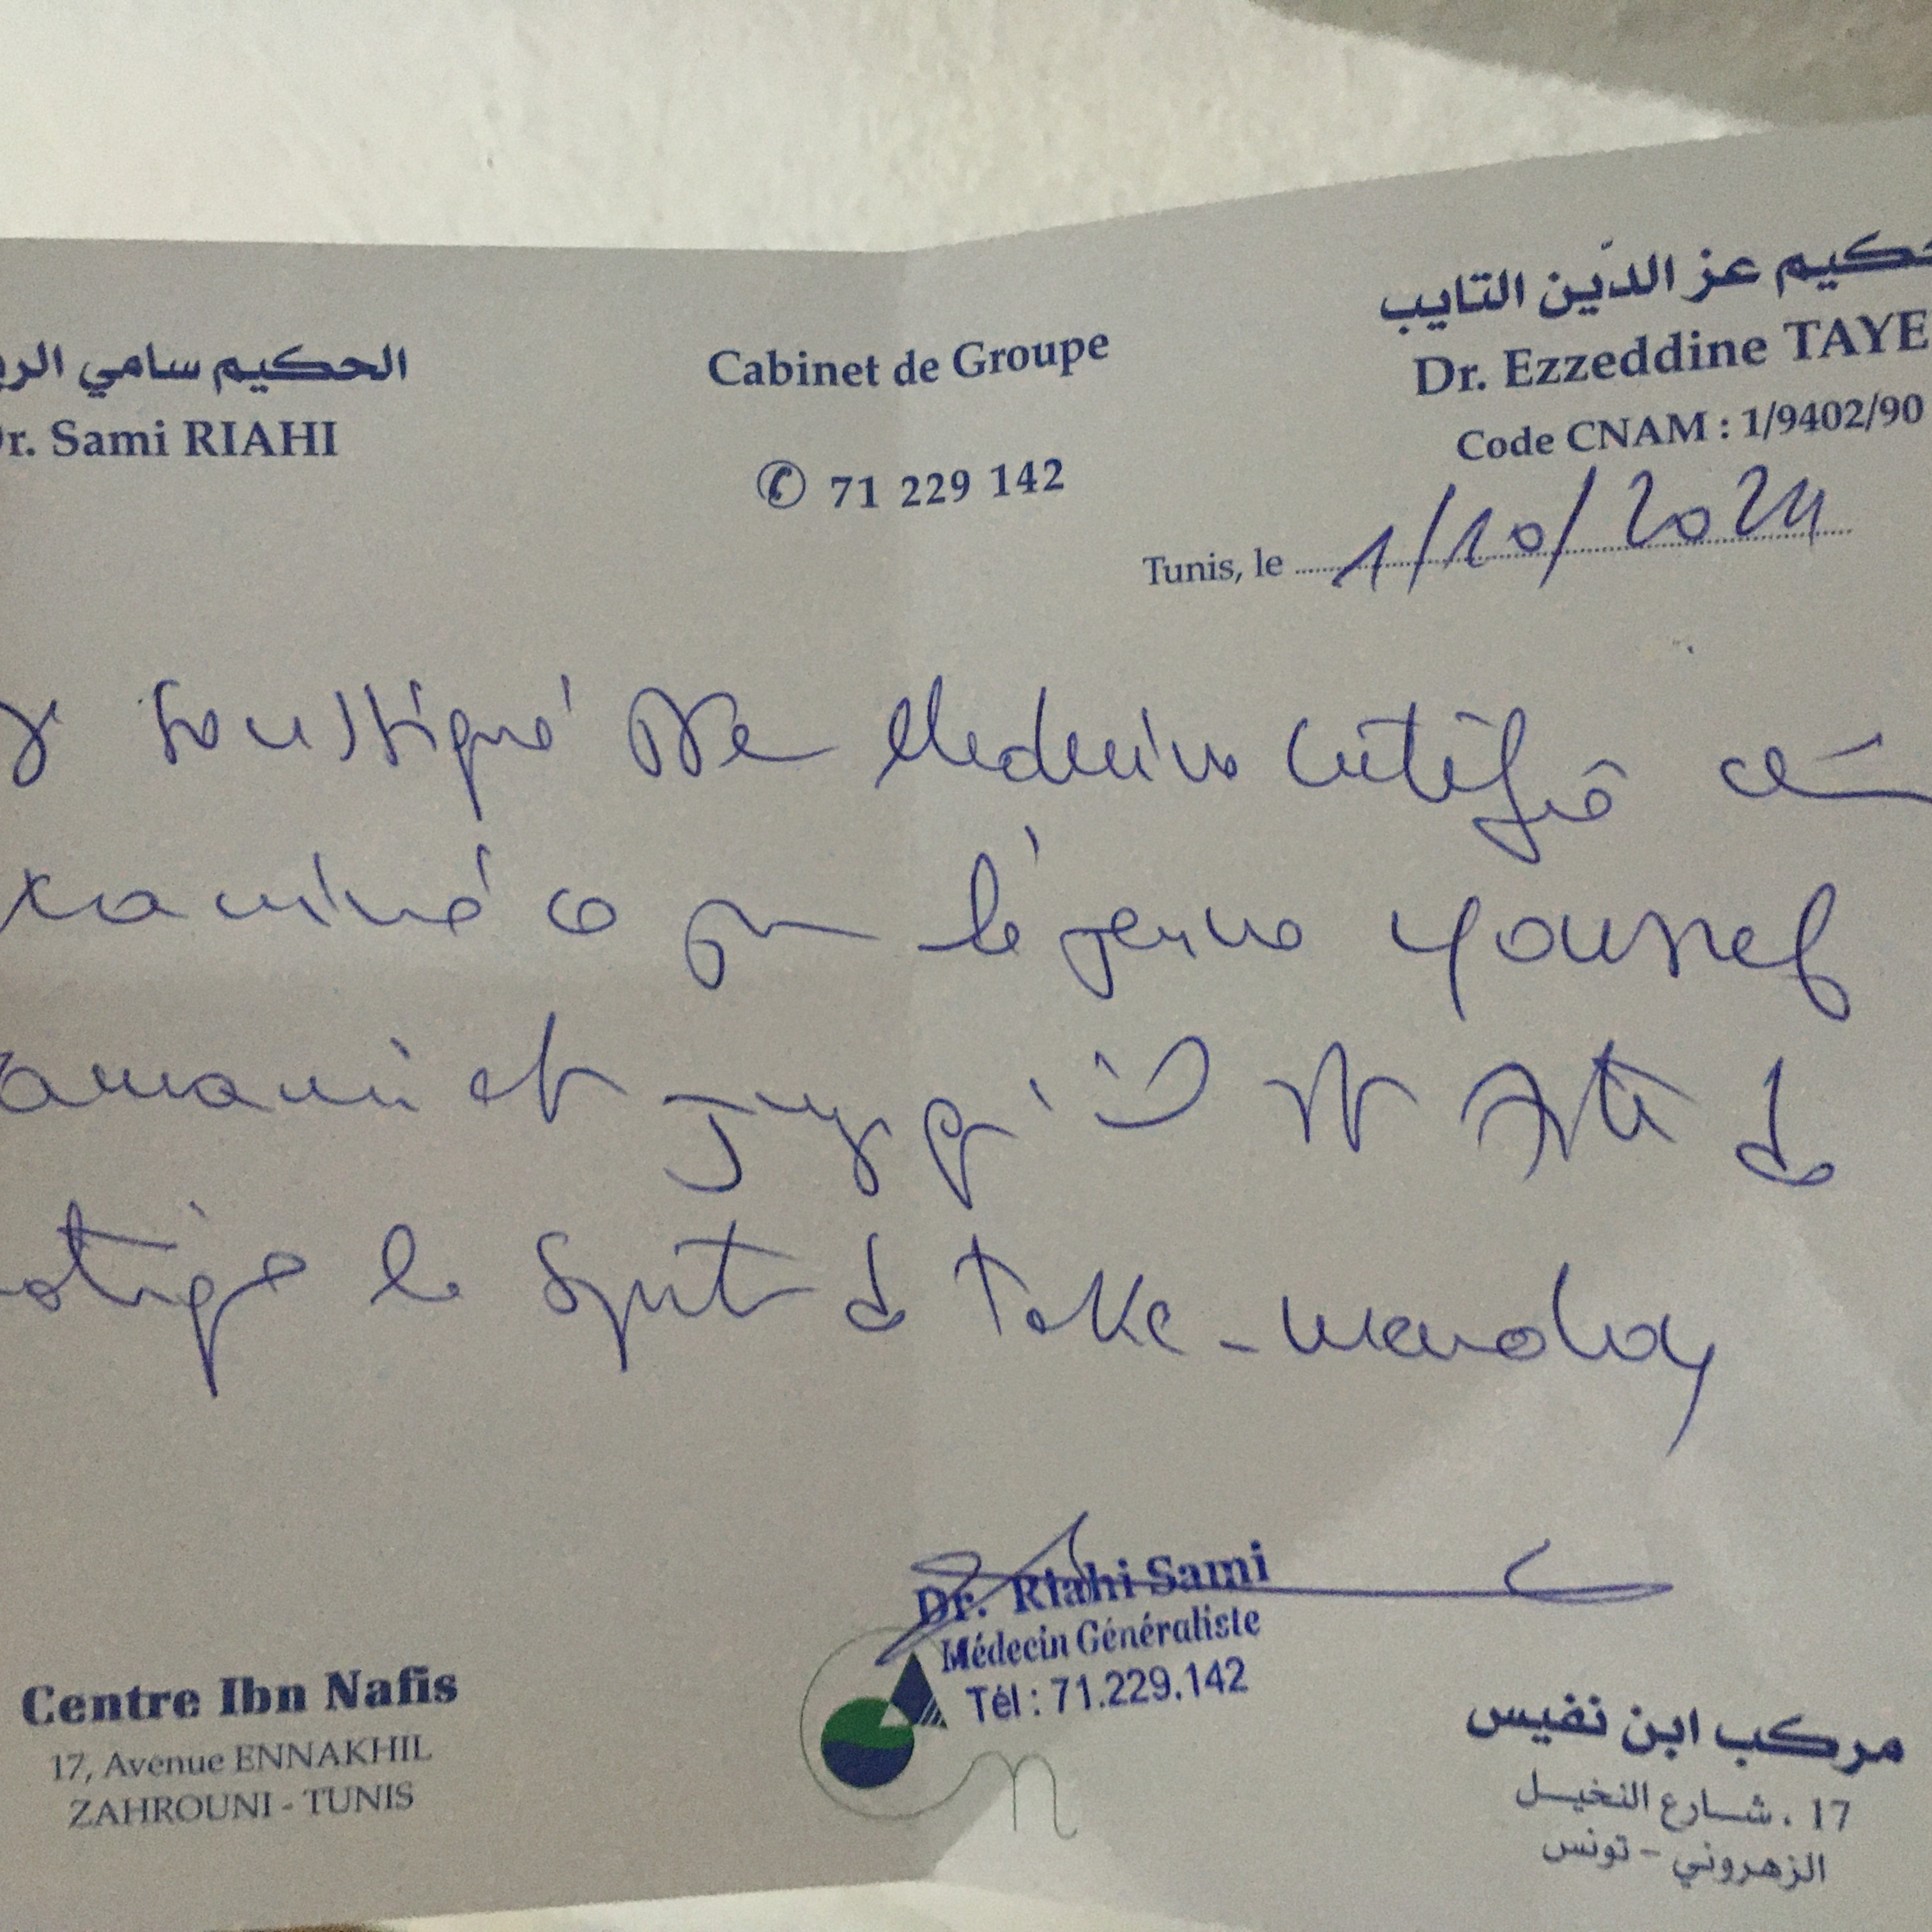 الحكيم سامي
Dr. Sami RIAHI
Cabinet de Groupe
71 229 142
حكيم عز الدّين التايب
Dr. Ezzeddine TAYE
Code CNAM : 1/9402/90
Tunis, le 1/10/2024
soussigné Dr en Medecine certifie
xaminé ce jour le jeune Youssef
et juge qu'il est apte à
pratiquer le sport de Take-wendoy
Dr. Riahi Sami
Médecin Généraliste
Tél : 71.229.142
Centre Ibn Nafis
17, Avenue ENNAKHIL
ZAHROUNI - TUNIS
مركب ابن نفيس
17 ، شارع النخيل
الزهروني - تونس